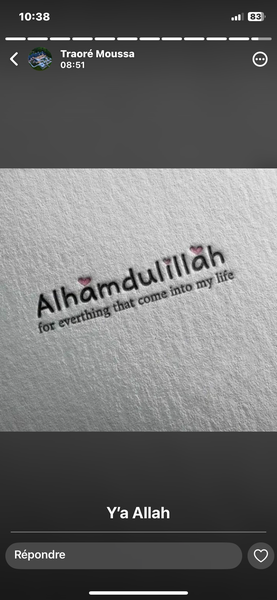 10:38
83
Traoré Moussa
08:51
Alhamdulillah
for everthing that come into my life
Y'a Allah
Répondre